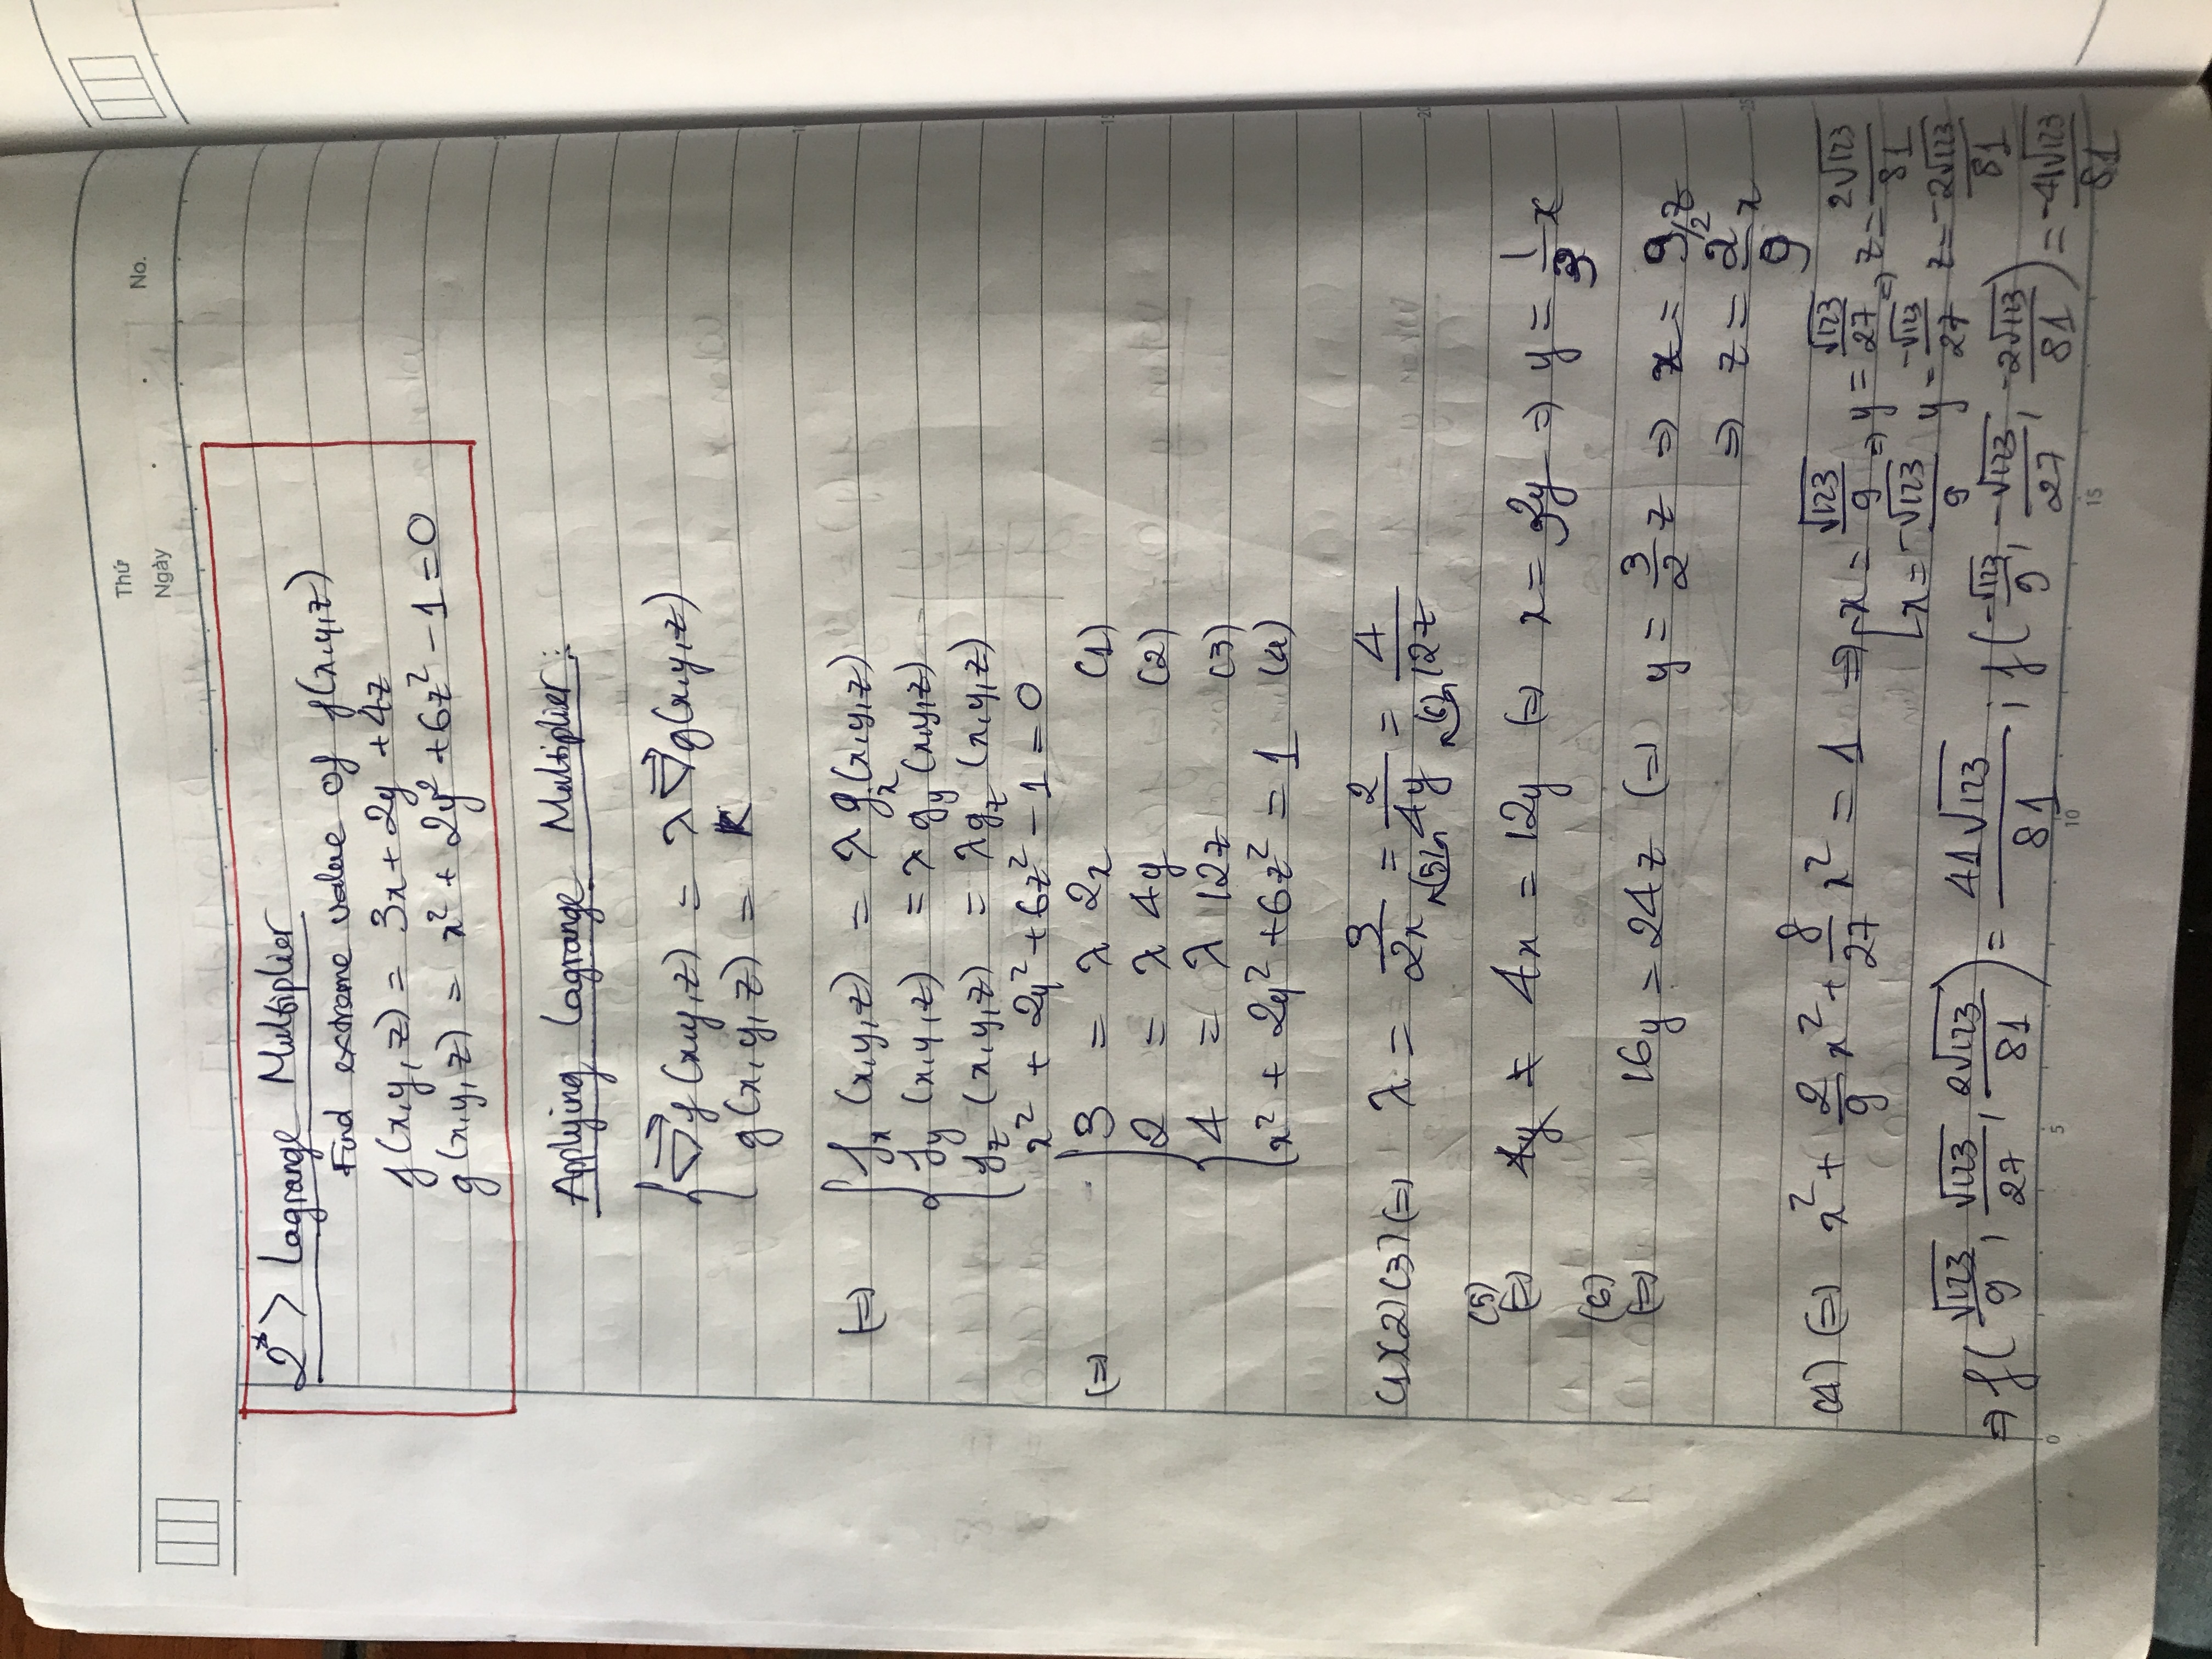 Thứ
Ngày
No.
2*> Lagrange Multiplier
Find extreme value of f(x,y,z)
f(x,y,z) = 3x + 2y + 4z
g(x,y,z) = x² + 2y² + 6z² − 1 = 0
Applying Lagrange Multiplier:
∇f(x,y,z) = λ ∇g(x,y,z)
g(x,y,z) = K
(=) f_x (x,y,z) = λ g_x(x,y,z)
f_y (x,y,z) = λ g_y (x,y,z)
f_z (x,y,z) = λ g_z (x,y,z)
x² + 2y² + 6z² − 1 = 0
(=) 3 = λ 2x (1)
2 = λ 4y (2)
4 = λ 12z (3)
x² + 2y² + 6z² = 1 (4)
(1)(2)(3) (=) λ = 3/2x = 2/4y = 4/12z
(5) (6)
(5)
(=) 4x = 12y (=) x = 3y ⇒ y = 1/3 x
(6)
(=) 16y = 24z (=) y = 3/2 z ⇒ x = 9/2 z
⇒ z = 2/9 x
(4) (=) x² + 2/9 x² + 8/27 x² = 1 ⇒ x = √123/9 ⇒ y = √123/27 ⇒ z = 2√123/81
x = −√123/9 y = −√123/27 z = −2√123/81
⇒ f(√123/9, √123/27, 2√123/81) = 41√123/81 ; f(−√123/9, −√123/27, −2√123/81) = −41√123/81
0 5 10 15